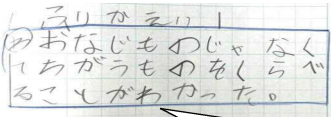 ふりかえり
め おなじものじゃなく
てちがうものをくらべ
ることがわかった。